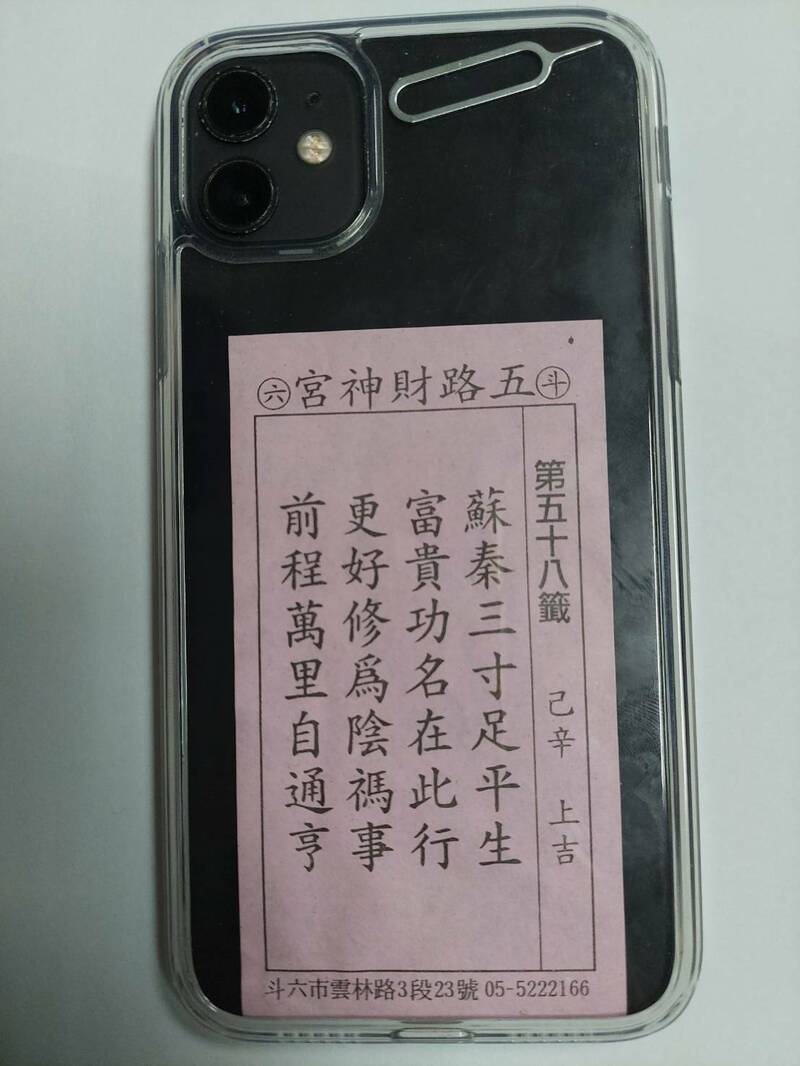 斗五路財神宮六
第五十八籤 己辛 上吉
蘇秦三寸足平生
富貴功名在此行
更好修為陰禡事
前程萬里自通亨
斗六市雲林路3段23號 05-5222166